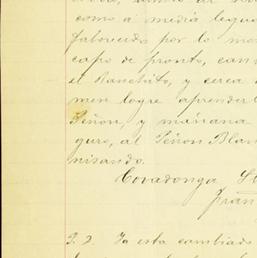 como a media legua
favorecido por lo mon
capo de pronto, cam
el Ranchito, y cerca d
men logre aprender l
Peñon, y mañana
guro, al Peñon Blan
nisando.
Covadonga St
Fran
P. D. Ya esta cambiado